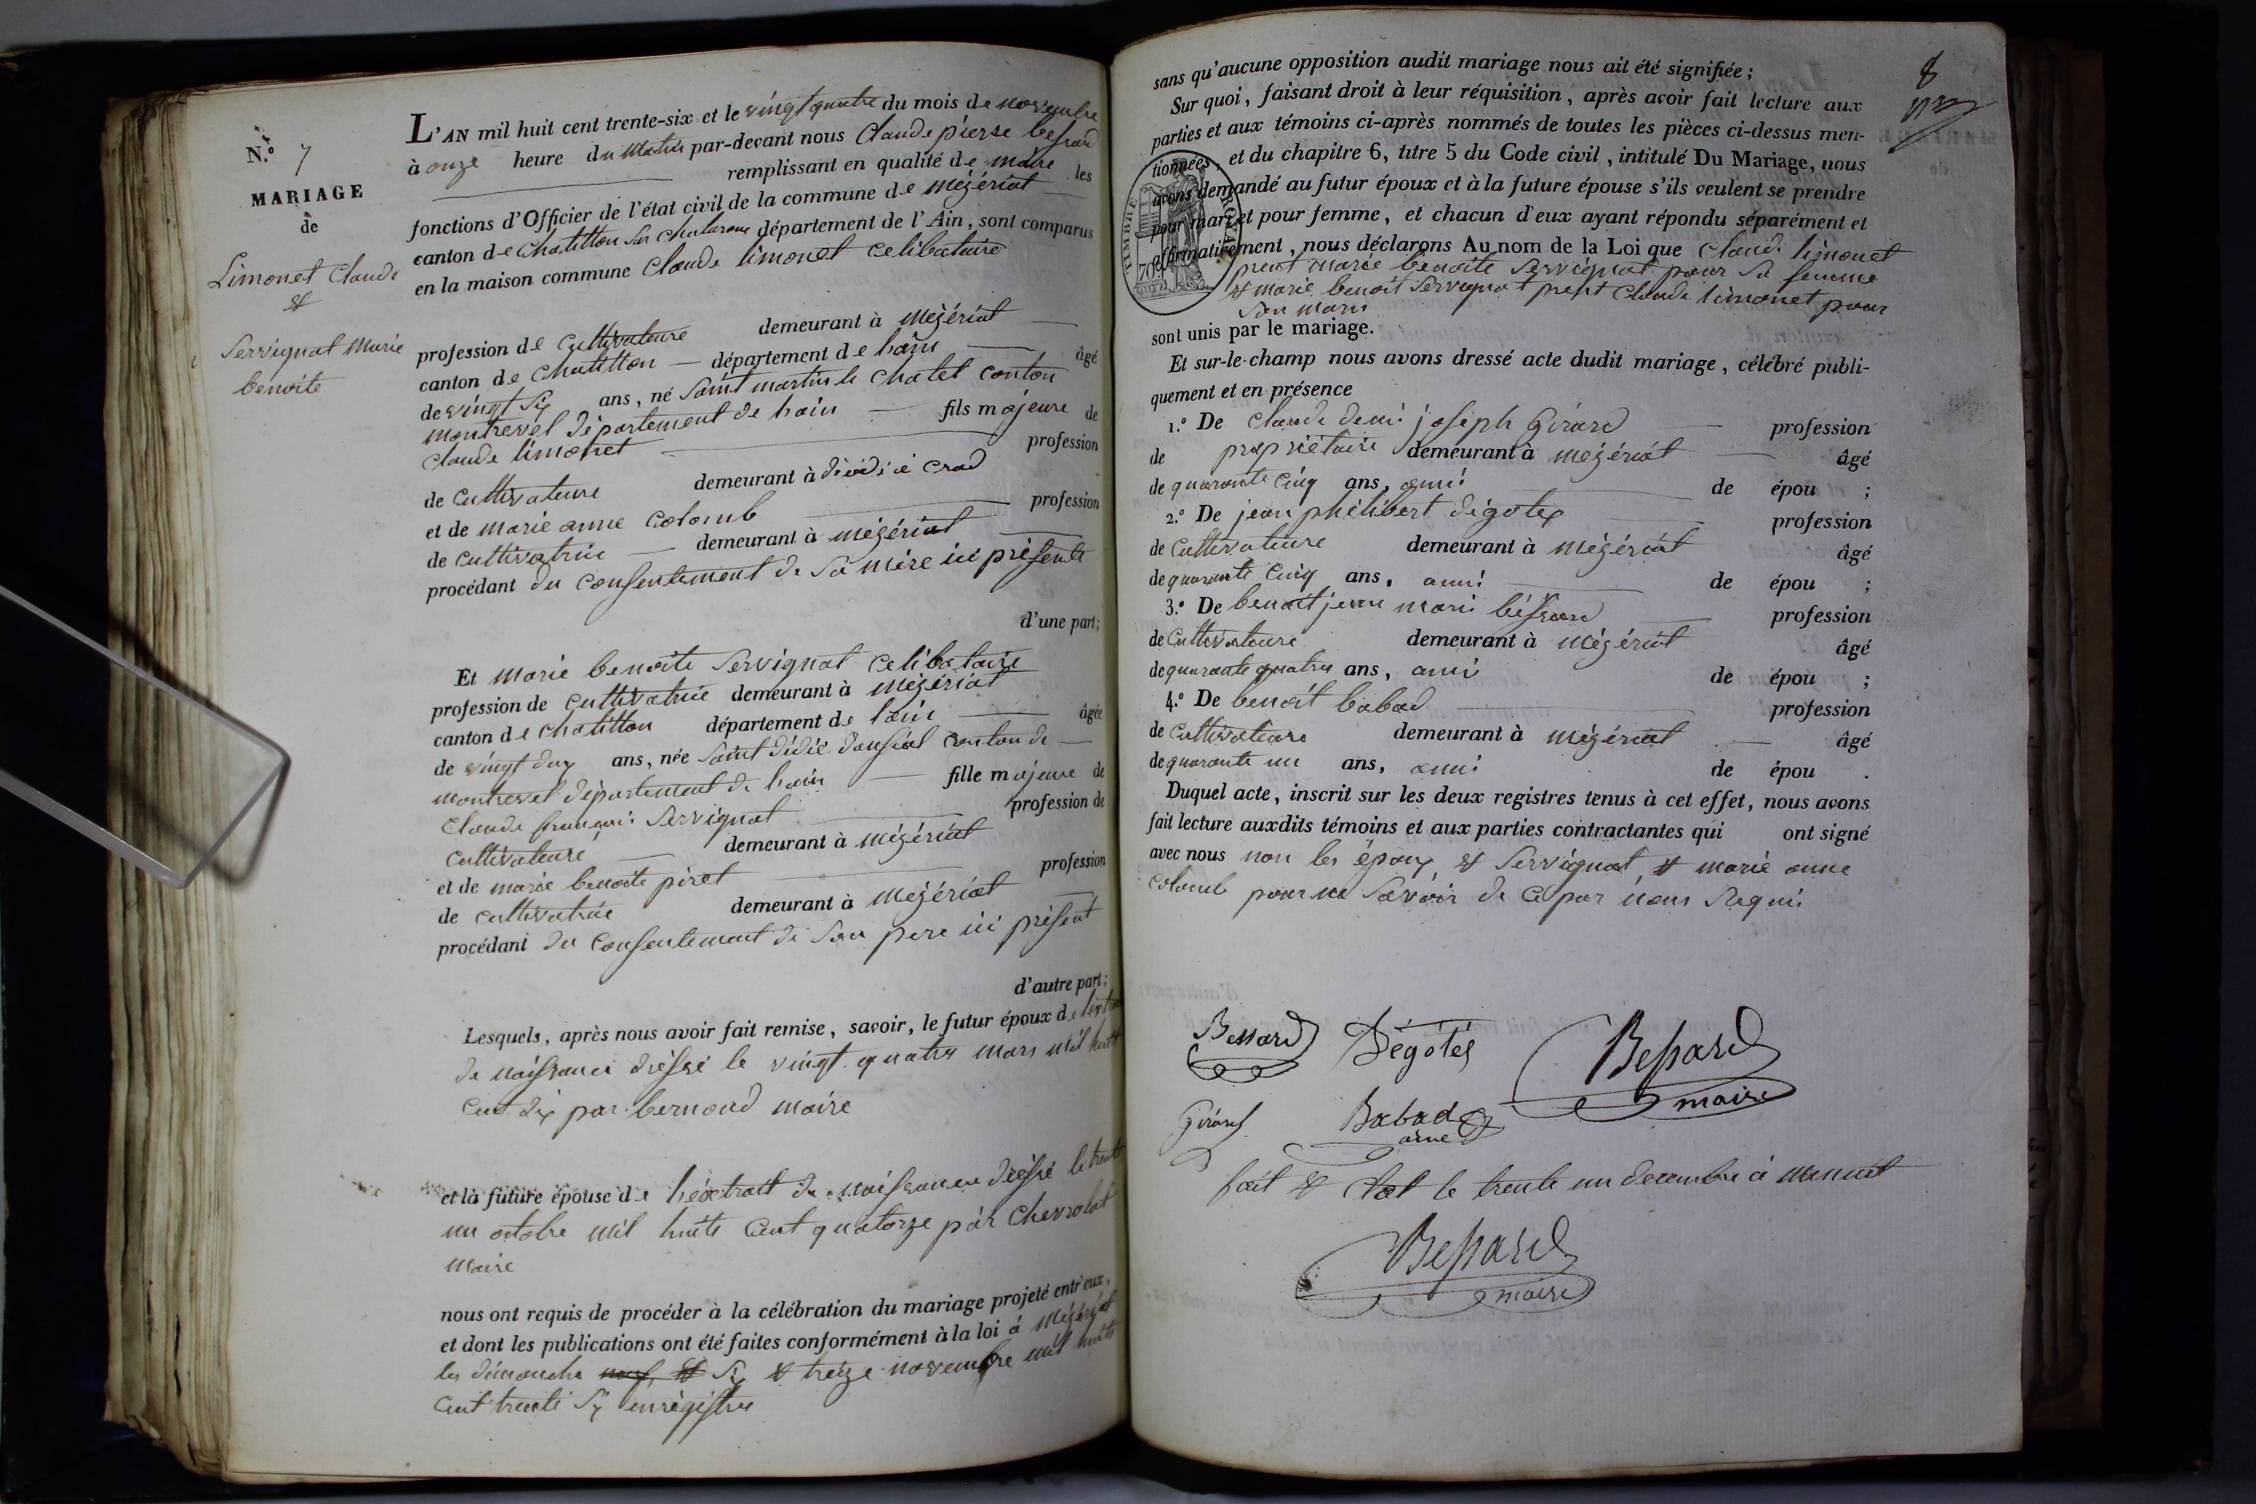 N.° 7
MARIAGE
de
Limonet Claude
&
Servignat Marie
benoite
L'AN mil huit cent trente-six et le vingt quatre du mois de novembre
à onze heure du matin par-devant nous Claude pierre bessard
remplissant en qualité de maire les
fonctions d'Officier de l'état civil de la commune de mézériat
canton de chatillon sur chalarone département de l'Ain, sont comparus
en la maison commune Claude limonet celibataire
profession de cultivateure demeurant à mézériat
canton de chatillon département de lain âgé
de vingt six ans, né saint martin le chatel conton
montrevel département de lain fils majeure de
Claude limonet profession
de cultivateure demeurant à décédé
et de marie anne colomb profession
de cultivatrice demeurant à mézériat
procédant du consentement de sa mère ici présente
d'une part;
Et marie benoite servignat celibataire
profession de cultivatrice demeurant à mézériat
canton de chatillon département de lain âgée
de vingt dux ans, née saint didié daussiat conton de
montrevel département de lain fille majeure de
Claude françoi servignat profession de
cultivateure demeurant à mézériat
et de marie benoite piret profession
de cultivatrice demeurant à mézériat
procédant du consentement de son pere ici présent
d'autre part;
Lesquels, après nous avoir fait remise, savoir, le futur époux de
de naissance dressé le vingt quatre mars mil huit
cent dix par bernoud maire
et la future épouse de l'extrait de naissance dressé le trente
un octobre mil huits cent quatorze par chevrolat
maire
nous ont requis de procéder à la célébration du mariage projeté entr'eux,
et dont les publications ont été faites conformément à la loi à mézériat
les dimanche neuf & six & treize novembre mil huits
cent trente six enregistre
8
sans qu'aucune opposition audit mariage nous ait été signifiée;
Sur quoi, faisant droit à leur réquisition, après avoir fait lecture aux
parties et aux témoins ci-après nommés de toutes les pièces ci-dessus men-
tionnées, et du chapitre 6, titre 5 du Code civil, intitulé Du Mariage, nous
avons demandé au futur époux et à la future épouse s'ils veulent se prendre
pour mari et pour femme, et chacun d'eux ayant répondu séparément et
affirmativement, nous déclarons Au nom de la Loi que claude limonet
prent marie benoite servignat pour sa femme
& marie benoit servignat prent claude limonet pour
son maris
sont unis par le mariage.
Et sur-le-champ nous avons dressé acte dudit mariage, célébré publi-
quement et en présence
1.° De claude joseph Girard profession
de propriétaire demeurant à mézériat âgé
de quarante cinq ans, ami de épou ;
2.° De jean philibert dégotex profession
de cultivateure demeurant à mézériat âgé
de quarante cinq ans, ami de épou ;
3.° De benoit jean mari bessard profession
de cultivateure demeurant à mézériat âgé
de quarante quatre ans, ami de épou ;
4.° De benoit babad profession
de cultivateure demeurant à mézériat âgé
de quarante un ans, ami de épou .
Duquel acte, inscrit sur les deux registres tenus à cet effet, nous avons
fait lecture auxdits témoins et aux parties contractantes qui ont signé
avec nous non les époux & servignat, & marie anne
colomb pour ne savoir de ce par nous requi
TIMBRE ROYAL
Bessard Dégotés Bessard
maire
Girard Babad
ainé
fait & clot le trente un decembre à minuit
Bessard
maire